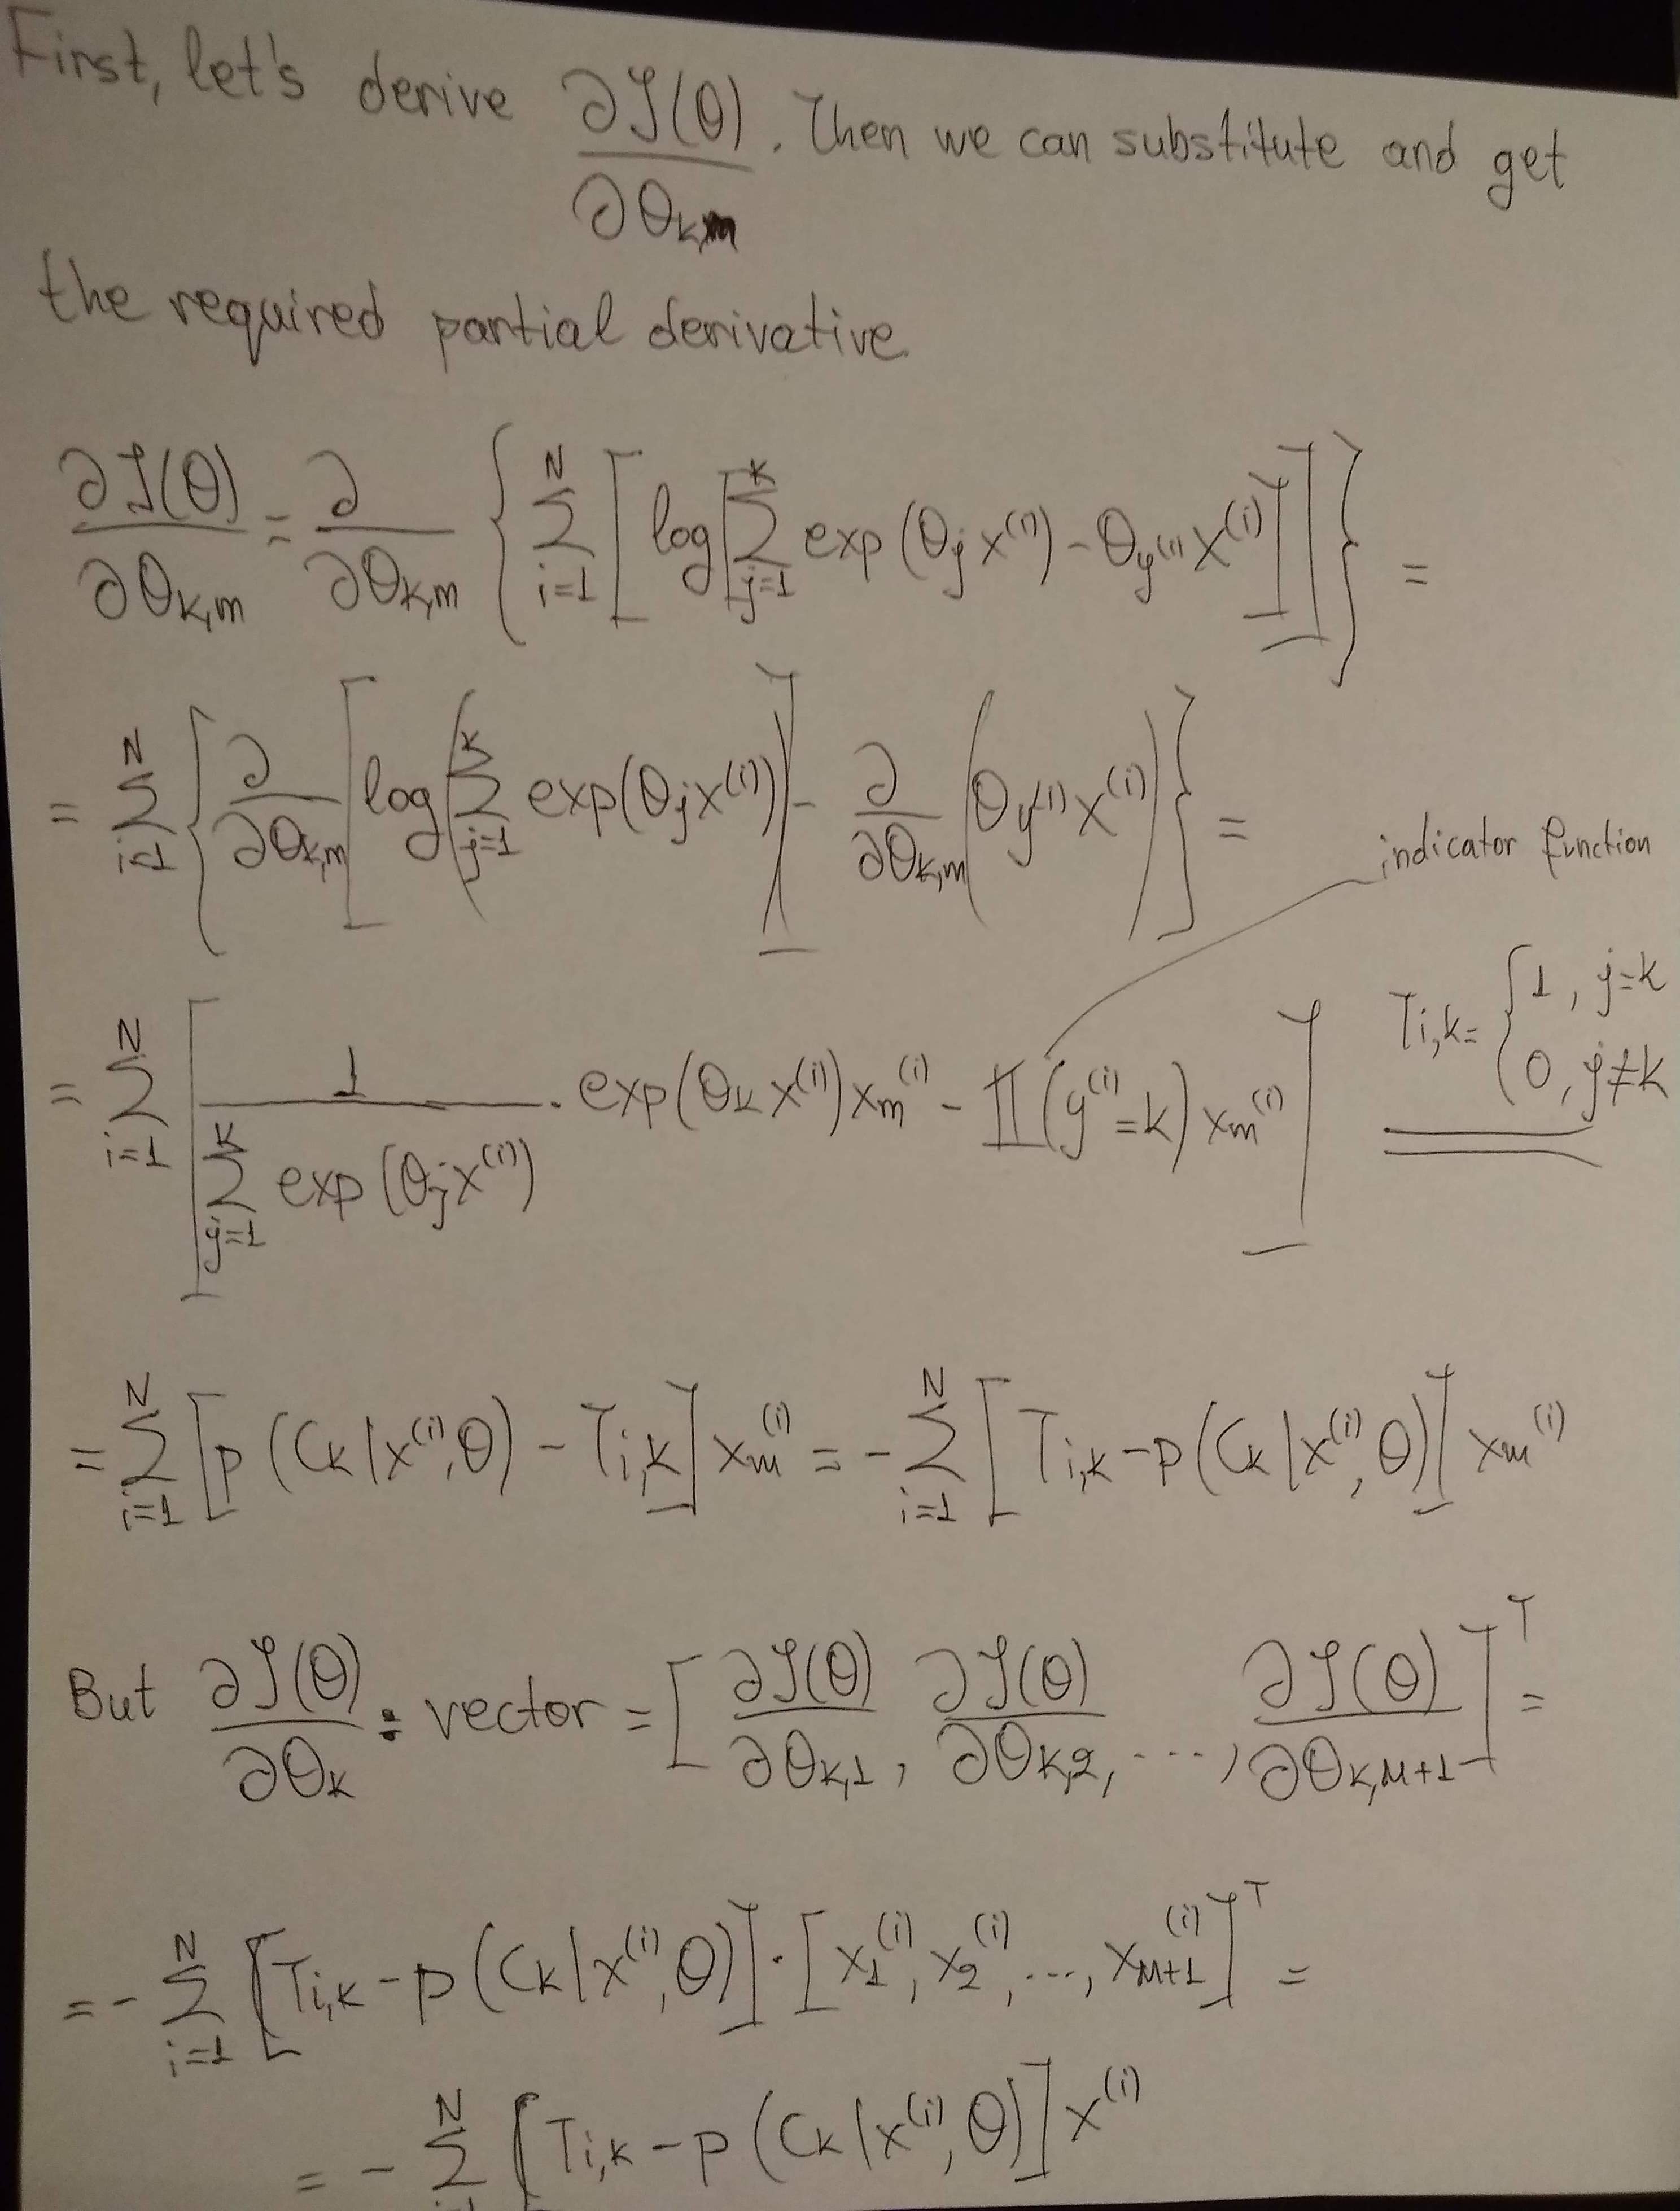 First, let's derive ∂J(θ)/∂θ_{k,m}. Then we can substitute and get
the required partial derivative
∂J(θ)/∂θ_{k,m} = ∂/∂θ_{k,m} { ∑_{i=1}^{N} [ log[ ∑_{j=1}^{K} exp(θ_j x^{(i)}) - θ_{y^{(i)}} x^{(i)} ] ] } =
= ∑_{i=1}^{N} { ∂/∂θ_{k,m} [ log( ∑_{j=1}^{K} exp(θ_j x^{(i)}) ) ] - ∂/∂θ_{k,m} ( θ_{y^{(i)}} x^{(i)} ) } =
indicator function
= ∑_{i=1}^{N} [ 1/(∑_{j=1}^{K} exp(θ_j x^{(i)})) · exp(θ_k x^{(i)}) x_m^{(i)} - 𝕀(y^{(i)} = k) x_m^{(i)} ]
T_{i,k} = { 1, j=k
0, j≠k
= ∑_{i=1}^{N} [ p(C_k|x^{(i)}, θ) - T_{i,k} ] x_m^{(i)} = - ∑_{i=1}^{N} [ T_{i,k} - p(C_k|x^{(i)}, θ) ] x_m^{(i)}
But ∂J(θ)/∂θ_k : vector = [ ∂J(θ)/∂θ_{k,1}, ∂J(θ)/∂θ_{k,2}, ..., ∂J(θ)/∂θ_{k,M+1} ]^T =
= - ∑_{i=1}^{N} [ T_{i,k} - p(C_k|x^{(i)}, θ) ] · [ x_1^{(i)}, x_2^{(i)}, ..., x_{M+1}^{(i)} ]^T =
= - ∑^{N} [ T_{i,k} - p(C_k|x^{(i)}, θ) ] x^{(i)}